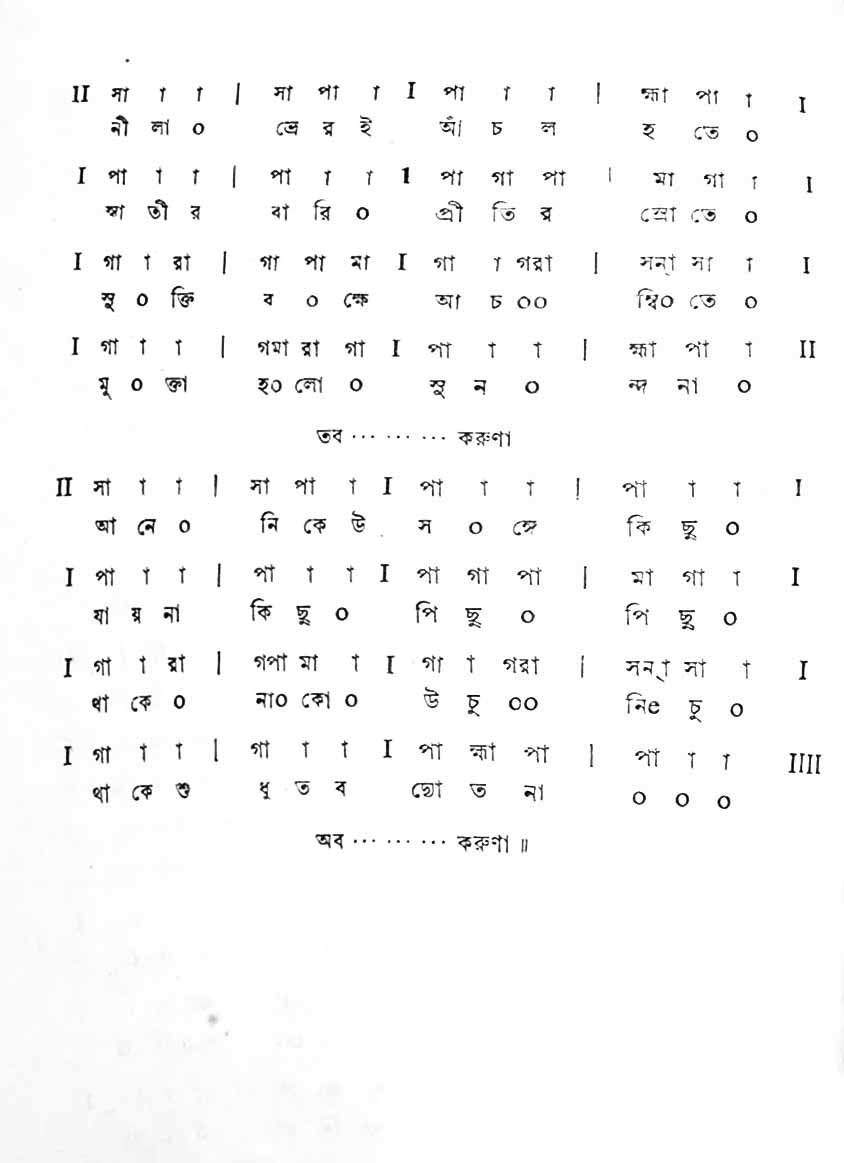 II সা া া | সা পা া I পা া া | হ্মা পা া I
নী লা ০ ভ্রে র ই আঁ চ ল হ তে ০
I পা া া | পা া া 1 পা গা পা | মা গা া I
স্বা তী র বা রি ০ প্রী তি র স্রো তে ০
I গা া রা | গা পা মা I গা া গরা | সন্‌া সা া I
সু ০ ক্তি ব ০ ক্ষে আ চ ০০ ম্বি০ তে ০
I গা া া | গমা রা গা I পা া া | হ্মা পা া II
মু ০ ক্তা হ০ লো ০ সু ন ০ ন্দ না ০
তব ... ... ... করুণা
II সা া া | সা পা া I পা া া | পা া া I
আ নে ০ নি কে উ স ০ ঙ্গে কি ছু ০
I পা া া | পা া া I পা গা পা | মা গা া I
যা য় না কি ছু ০ পি ছু ০ পি ছু ০
I গা া রা | গপা মা া I গা া গরা | সন্‌া সা া I
থা কে ০ না০ কো ০ উ চু ০০ নি০ চু ০
I গা া া | গা া া I পা হ্মা পা | পা া া IIII
থা কে শু ধু ত ব দ্যো ত না ০ ০ ০
অব ... ... ... করুণা ॥